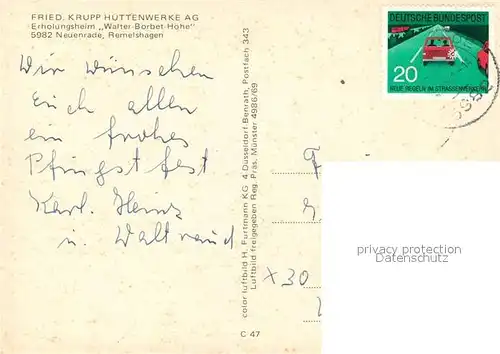 FRIED. KRUPP HÜTTENWERKE AG
Erholungsheim „Walter-Borbet-Höhe"
5982 Neuenrade, Remelshagen
Wir wünschen
Euch allen
ein frohes
Pfingstfest
Karl-Heinz
u. Waltraud
color luftbild H. Furtmann KG 4 Düsseldorf Benrath, Postfach 343
Luftbild freigegeben Reg. Präs. Münster 4986/69
C 47
DEUTSCHE BUNDESPOST
20
NEUE REGELN IM STRASSENVERKEHR
X30
privacy protection
Datenschutz